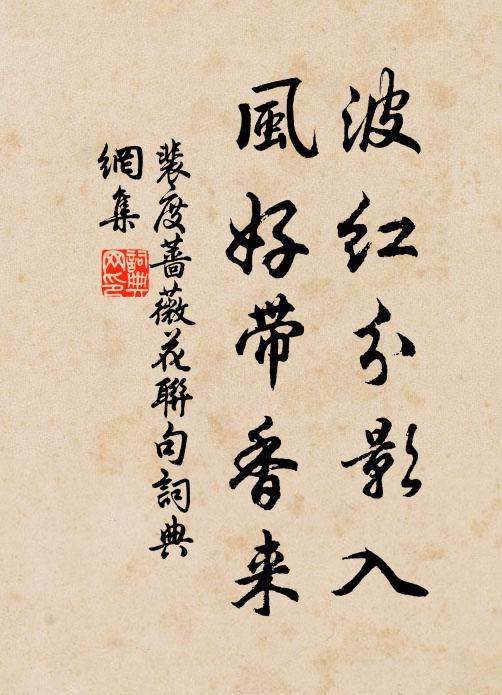 波红分影入
風好帶香来
裴度薔薇花聯句詞典
網集
詞典
网印